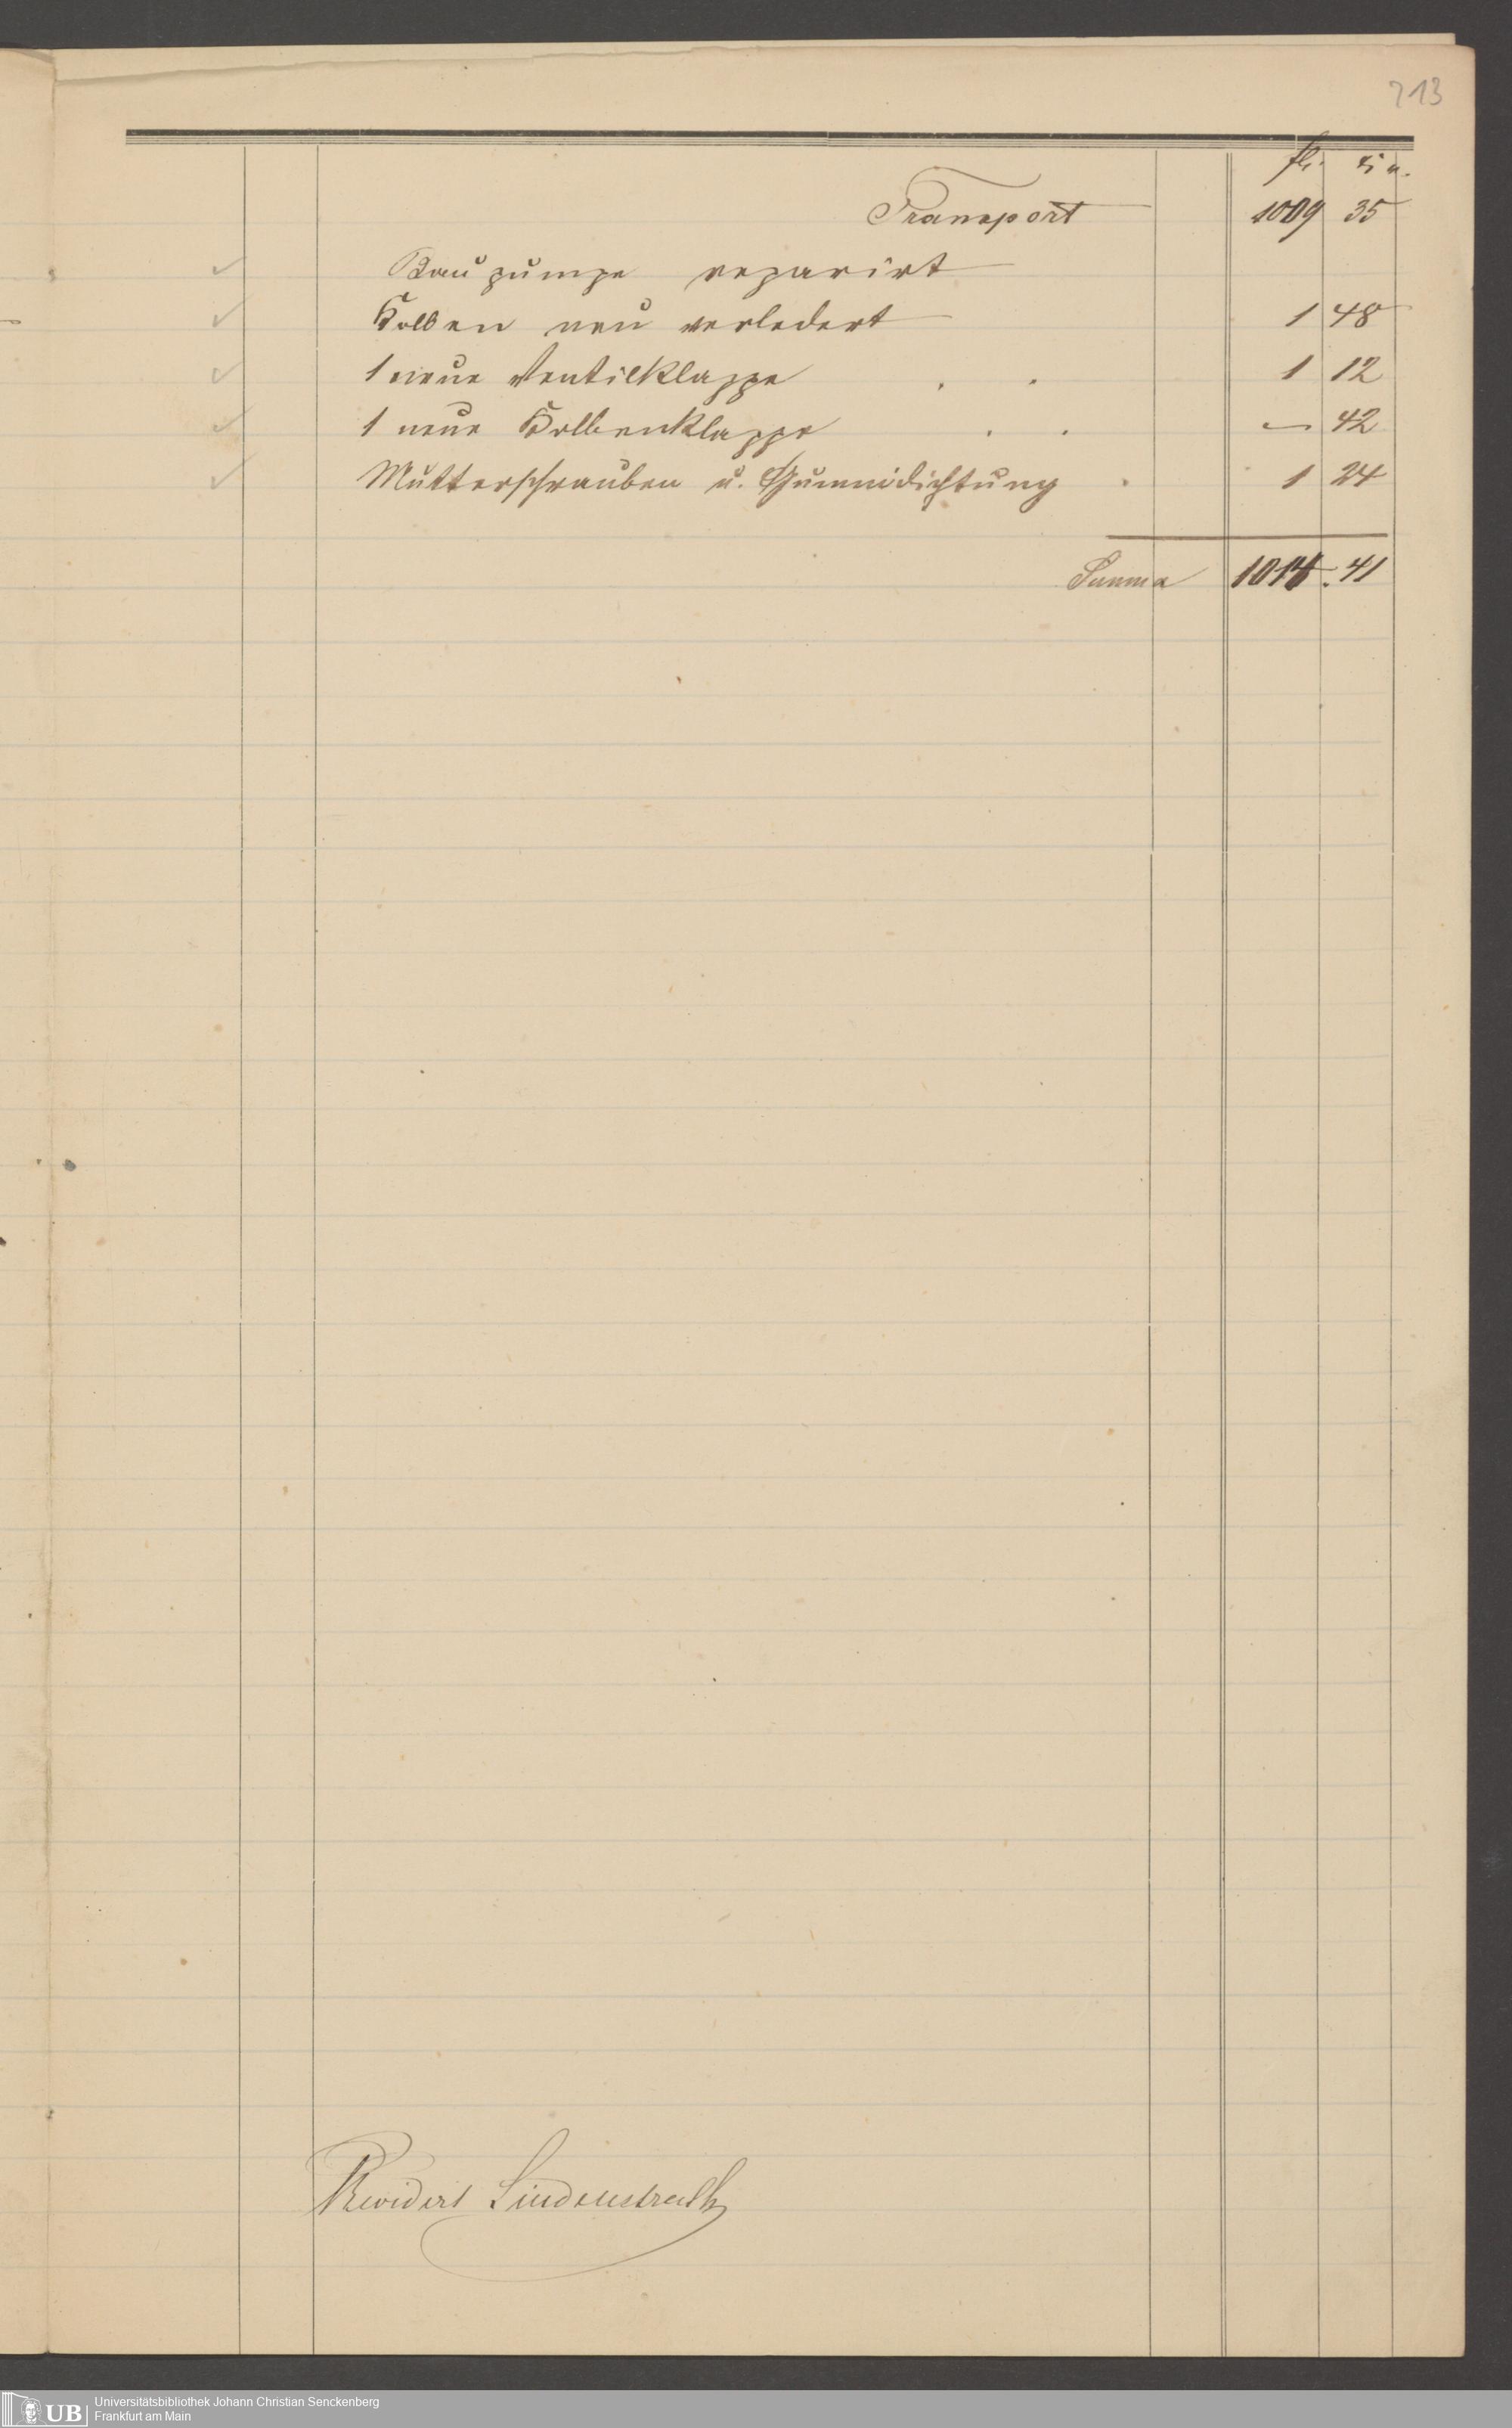 213
fl. Xr.
Transport 1009 35
Baupumpe reparirt
Kolben neu verledert 1 48
1 neue Ventilklappe . . 1 12
1 neue Kolbenklappe . . — 42
Mutterschrauben u. Gummidichtung . 1 24
Summa 1014. 41
Revidirt Lindenstruth
UB
Universitätsbibliothek Johann Christian Senckenberg
Frankfurt am Main